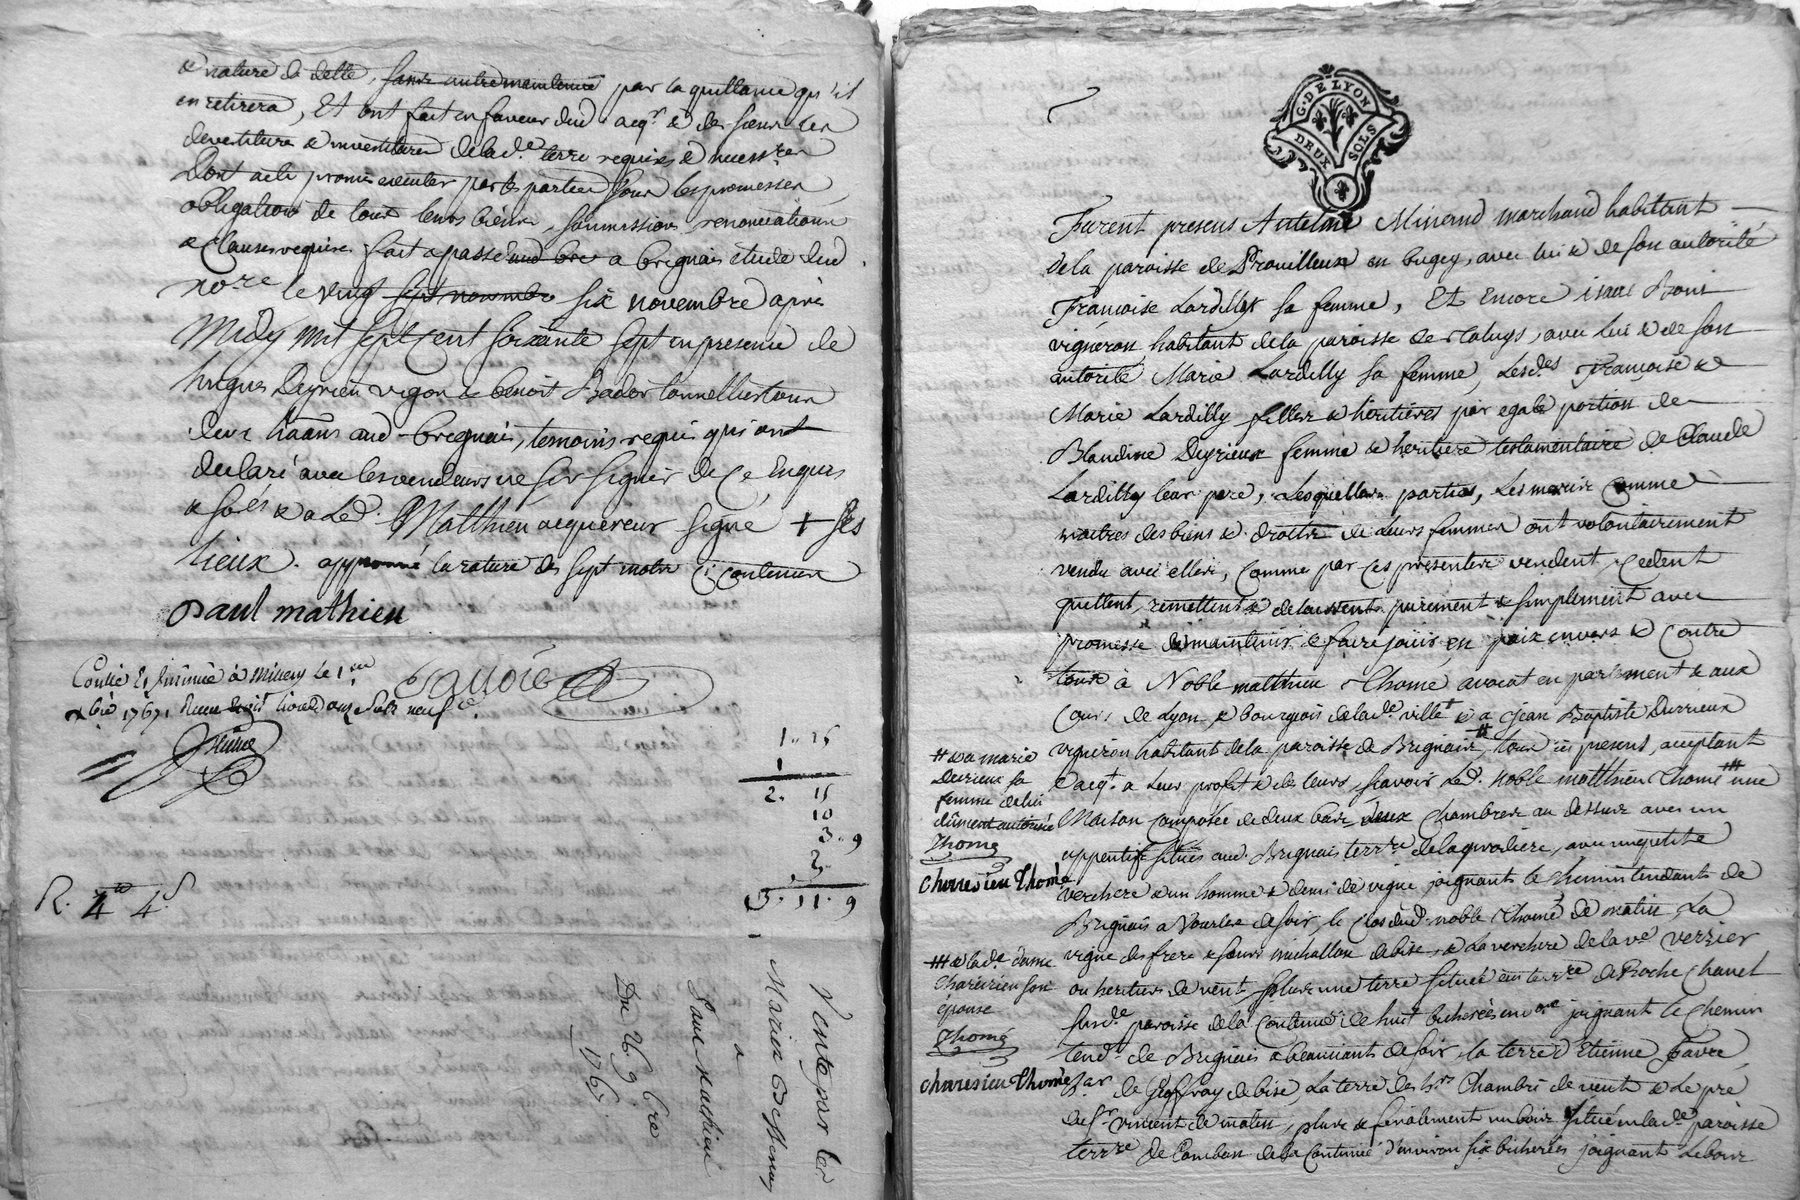 & nature de dette, sans autre maintenue par la quittance qu'il
en retirera, Et ont fait en faveur dud. acqr. & des siens les
devestiture & investitures de lade. terre requises & necessres
Dont acte promis executer par les parties sous les promesses
obligations de tous leurs biens, soumissions, renonciations
& Clauses requises fait & passé aud. bri a brignais etude dud
nore le vingt sept novembre six novembre après
Midy mil sept Cent soixante sept en presence de
hugues Deyrieu vigon & benoit Bador tonnellier tous
deux haans aud. Brignais, temoins requis qui ont
declaré avec les vendeurs ne sçavoir signer de Ce Enquis
& led. Matthieu acquereur signé + ses
lieux. approuvé la rature de sept mots Ci contenues
paul mathieu
Contlé Et Insinué à Millery le 1er
xbre 1767, Receu
1.. 15
1
2. 15
10
3. 9
3
3. 11. 9
R. 4tt 4s
Vente par les
Mariés
a
Paul Mathieu
Du 26 9bre
1767.
G. DE LYON
DEUX SOLS
Furent presens Antelme Minand marchand habitant
de la paroisse de Prouilleux en bugey, avec lui & de son autorité
Françoise Lardilly sa femme, Et Encore isaac Boni
vigneron habitant de la paroisse de Taluys, avec lui & de son
autorité Marie Lardilly sa femme, Lesdes. Françoise &
Marie Lardilly filles & heritieres par egale portion de
Blandine Deyrieux femme & heritiere testamentaire de Claude
Lardilly leur pere, Lesquelles parties, Les maris Comme
maitres des biens & droits de Leurs femmes ont volontairement
vendu avec elles, Comme par Ces presentes vendent, Cedent
quittent, remettent & delaissent purement & simplement avec
promesse de maintenir & faire jouir en paix envers & Contre
tous à Noble matthieu Thomé avocat en parlement & aux
Cours de Lyon & bourgeois de lade. ville & a Jean Baptiste Durrieux
vigneron habitant de la paroisse de Brignais #, tous ici present, acceptant
& acqt. a Leur profit & des leurs, sçavoir Led. noble matthieu Thomé ### une
Maison Composée de deux bas, deux Chambres au dessus avec un
appentis situés aud. Brignais terrre de la giraudiere, avec une petite
verchere & un homme & demi de vigne joignants le chemin tendants de
Brignais a Vourles de soir, le Clos dud. noble Thomé de matin, La
vigne des frere & sœurs michallon de bise, & La verchere de la ve. verzier
ou heritiers de vent, plus une terre située en terre de Roche Chanel
susde. paroisse de la Contenue de huit bicherées environ joignant le Chemin
tendt. de Brignais a beaunant de soir, la terre d'Etienne Favre
de Geoffray de bise, La terre des hrs. Chambri de vent & Le pré
de Sr. vincent de matin, plus & finalement un bois situé en lade. paroisse
terrre de Combass de la Contenue d'environ six bicherées joignant Le bois
# & a marie
Durieux sa
femme de lui
dûment autorisée
Thomé
charesieu Thomé
### & lade dame
Charesieu son
épouse
Thomé
charesieu Thomé